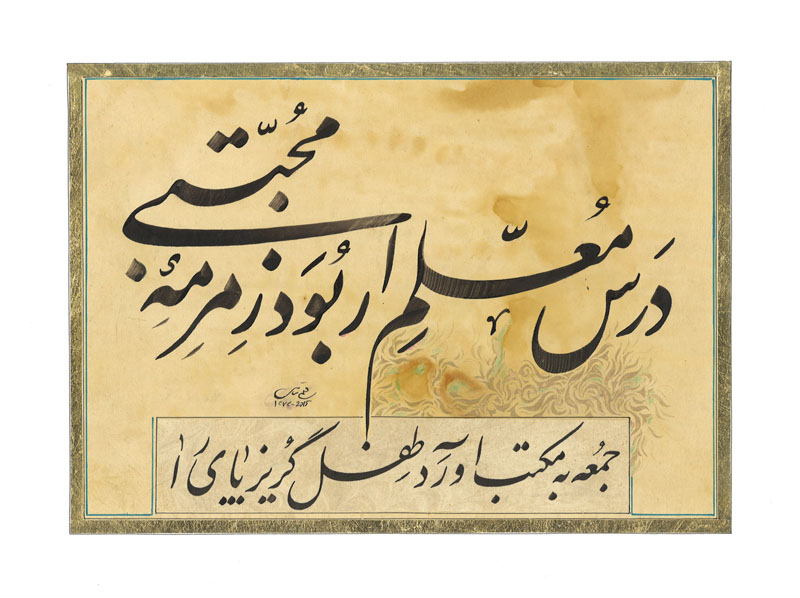 دَرسِ مُعلّمِ ار بُوَد زمزمِهٔ محبّتی
جمعه به مکتب اورَد طفل گُریزپای را